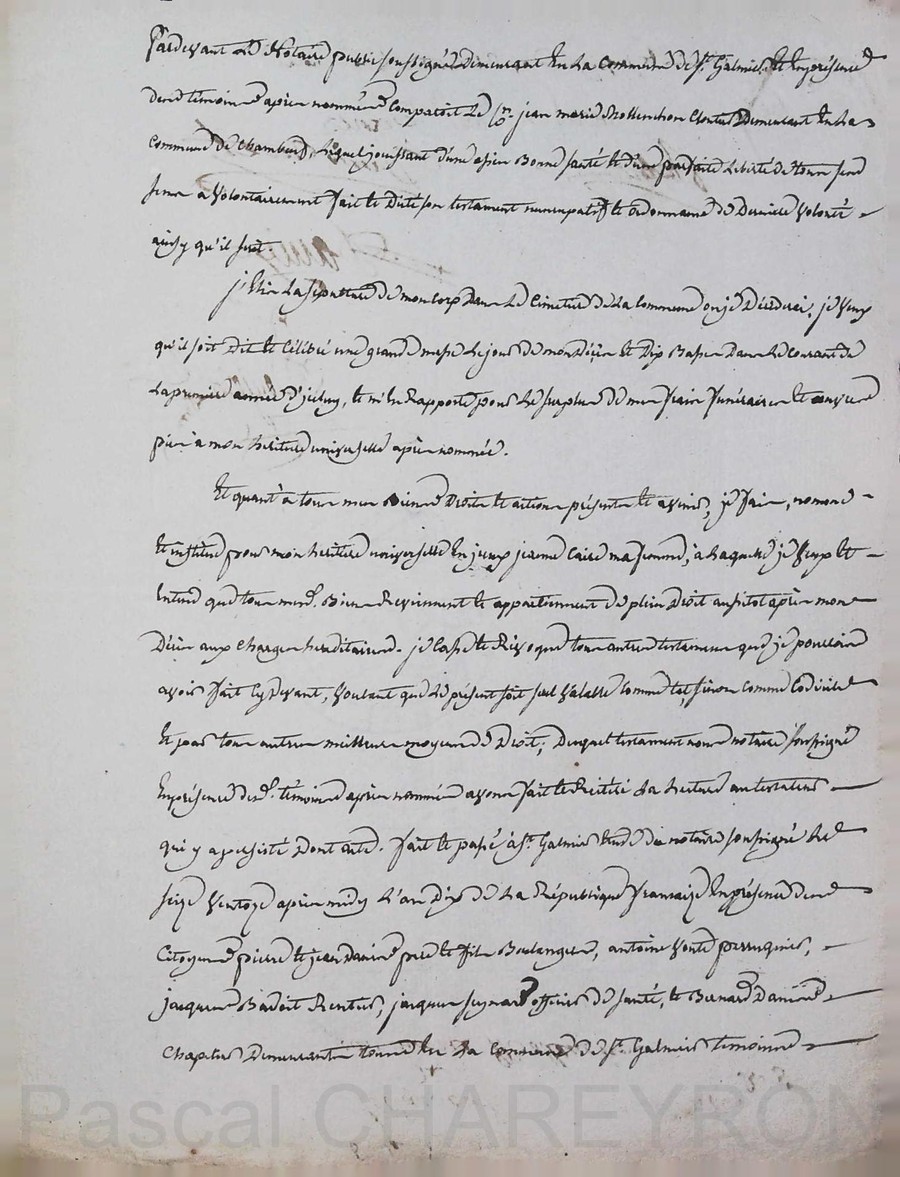 Pardevant le Notaire public soussigné demeurant en la Commune de St. Galmier et en présence
des témoins après nommés Comparoit le Cn. jean marie demeurant en la
Commune de Chambeuf, lequel jouissant d'une assez bonne santé et d'une parfaite liberté de tous ses
sens a volontairement fait et dicté son testament nuncupatif et ordonnance de dernière volonté
ainsy qu'il suit
j'élis la sépulture de mon corps dans le Cimetière de la Commune ou je décéderai, je veux
qu'il soit dit et célébré une grande messe le jour de mon décès et dix basses dans le courant de
la première année d'jceluy, et m'en rapporte pour le surplus de mes frais funéraires et œuvres
pies à mon héritière universelle après nommée.
Et quant à tous mes biens droits et actions présents et avenir, je fais, nomme
et institue pour mon héritière universelle en jceux jeanne ma femme, à laquelle je veux et
entend que tous mesd. biens reviennent et appartiennent de plein droit aussitot après mon
décès aux charges héréditaires. je casse et révoque tous autres testaments que je pourrois
avoir fait cydevant, voulant que le présent soit seul valable comme tel, sinon comme codicile
et par tous autres meilleurs moyens de droit; duquel testament nous notaire soussigné
en présence desd. témoins après nommés avons fait et réitéré la lecture au testateur
qui y a persisté dont acte. fait et passé à St. Galmier étude du notaire soussigné le
seize ventose après midy l'an dix de la République française en présence des
Citoyens pierre et jean père et fils Boulangers, antoine perruquier,
jacques Badoit Rentier, jacques officier de santé, et Bernard
Chapelier demeurants tous en la commune de St. Galmier témoins
Pascal CHAREYRON